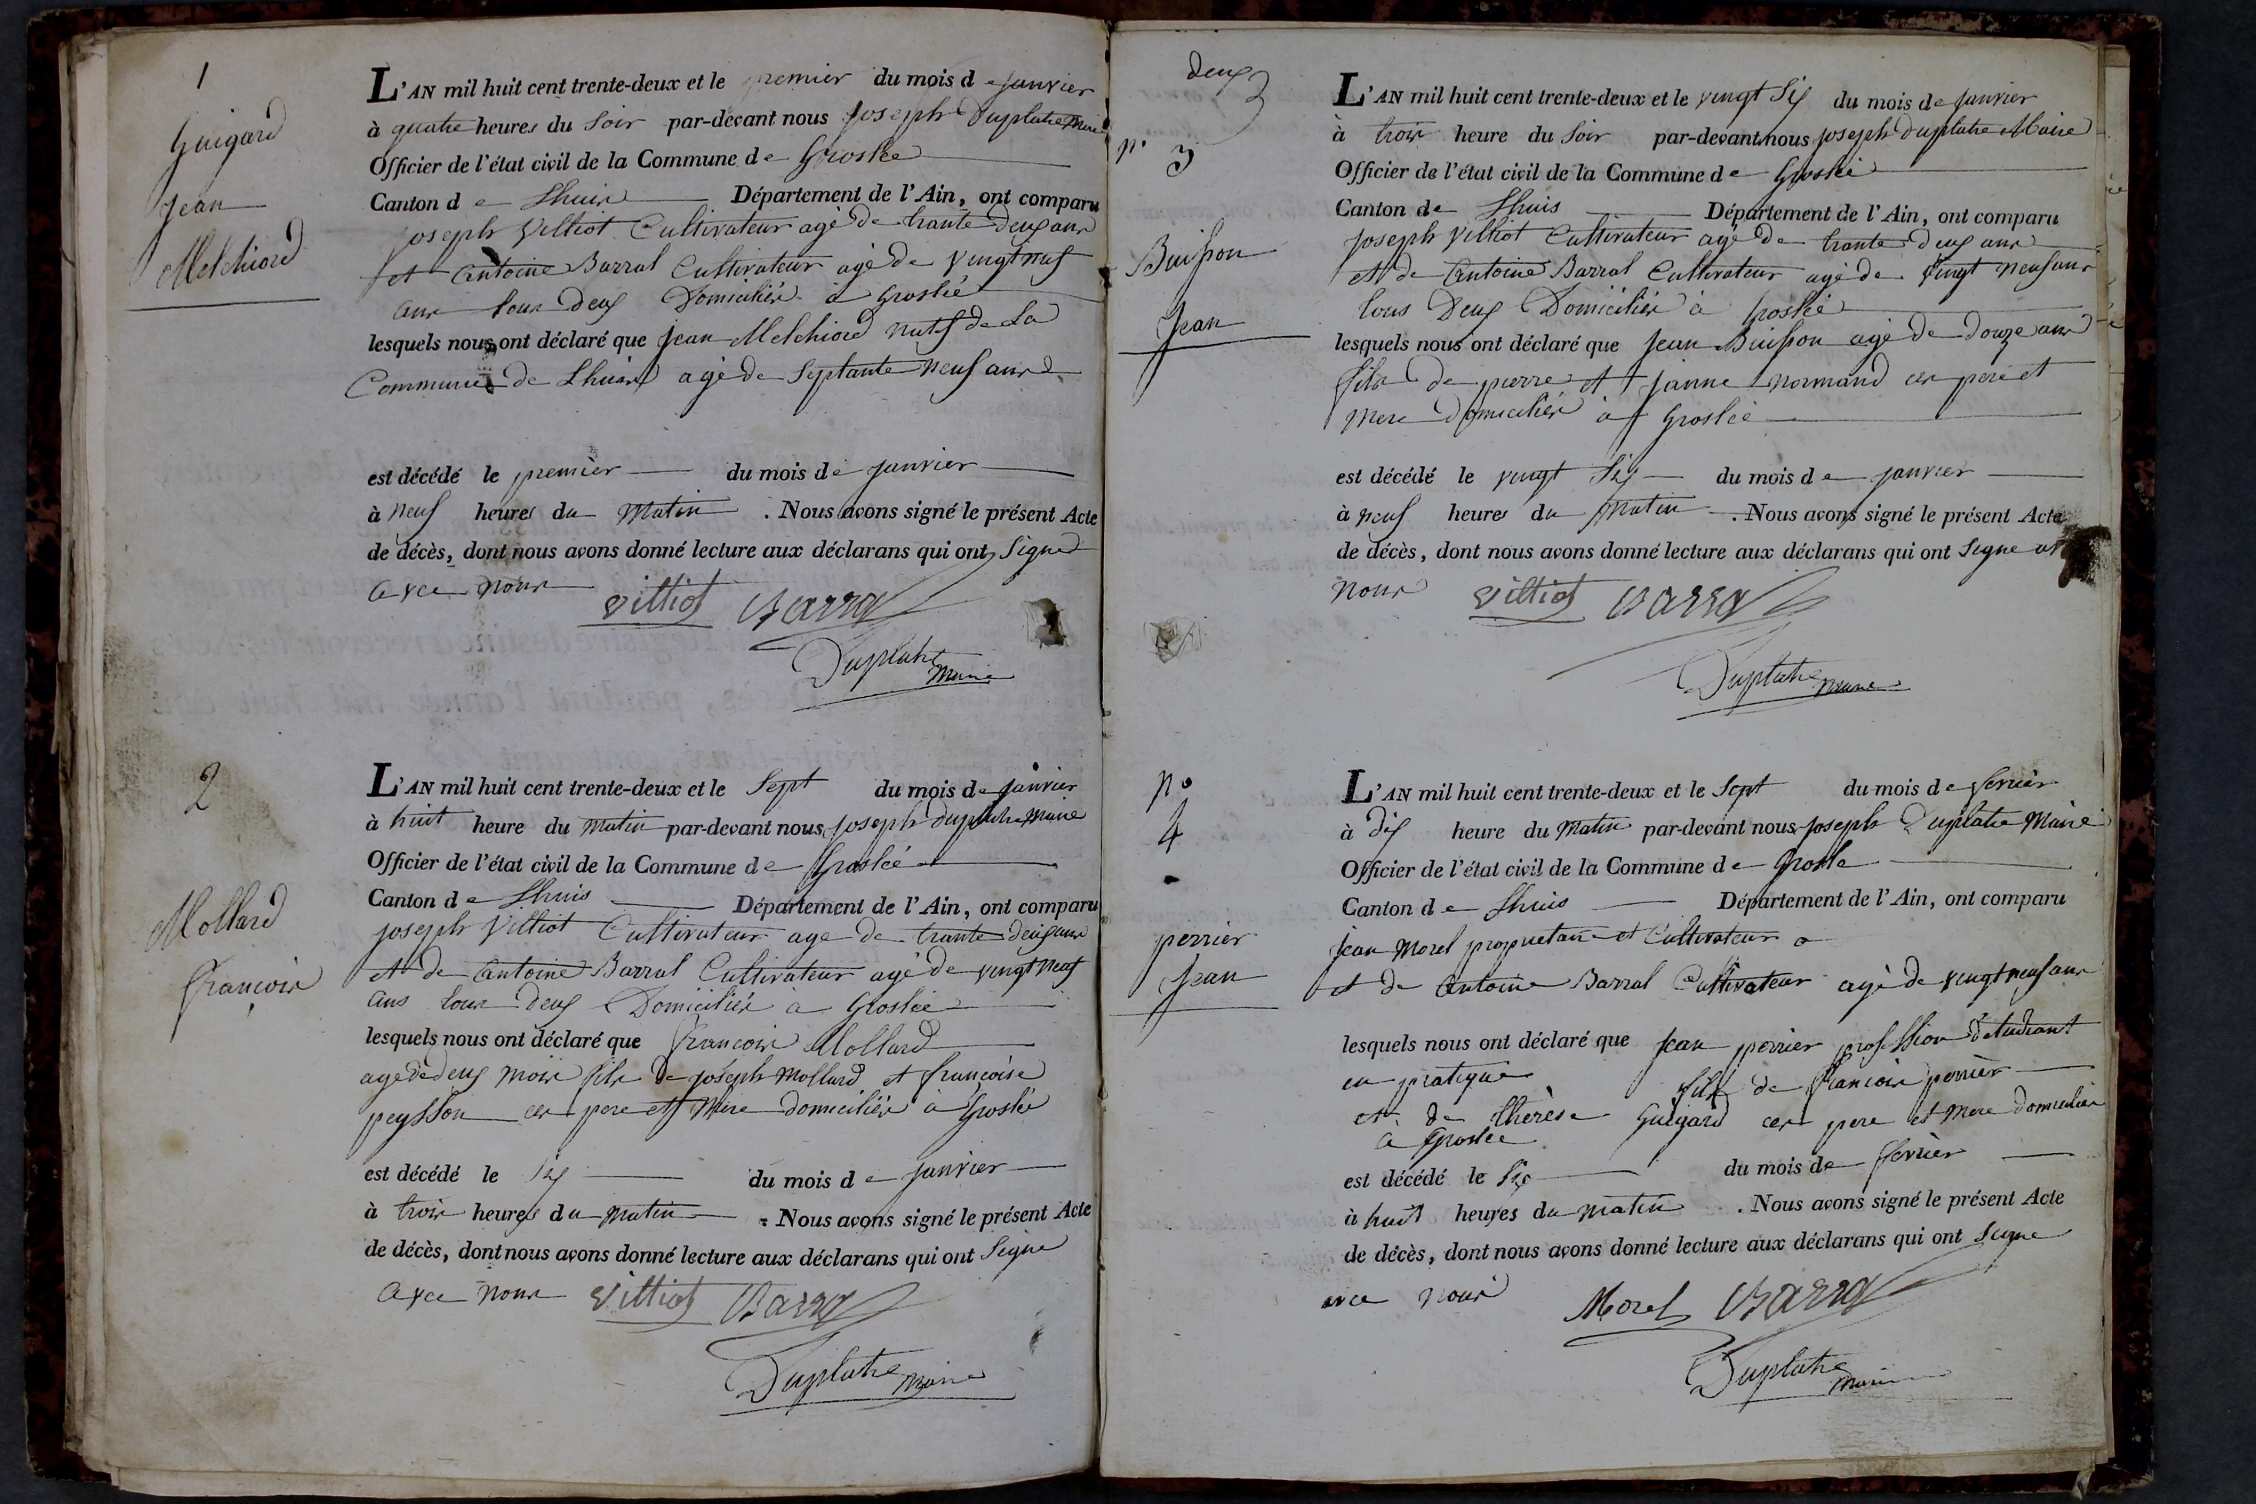 1
Guigard
Jean
Melchiord
L'AN mil huit cent trente-deux et le premier du mois de janvier
à quatre heures du Soir par-devant nous joseph Duplatre Maire
Officier de l'état civil de la Commune de Groslée
Canton de Lhuis Département de l'Ain, ont comparu
joseph Villiot Cultivateur agé de trante deux ans
et Antoine Barral Cultivateur agé de vingt neuf
ans tous deux Domiciliés à Groslée
lesquels nous ont déclaré que Jean Melchiord natif de La
Commune de Lhuis agé de Septante neuf ans
est décédé le premier du mois de janvier
à neuf heures du Matin. Nous avons signé le présent Acte
de décès, dont nous avons donné lecture aux déclarans qui ont Signé
avec nous
Villiot Barral
Duplatre
Maire
2
Mollard
François
L'AN mil huit cent trente-deux et le Sept du mois de janvier
à huit heure du matin par-devant nous joseph duplatre Maire
Officier de l'état civil de la Commune de Groslée
Canton de Lhuis Département de l'Ain, ont comparu
joseph Villiot Cultivateur age de trante deux ans
et de Antoine Barral Cultivateur agé de vingt neuf
ans tous deux Domiciliés a Groslée
lesquels nous ont déclaré que François Mollard
age de deux mois fils de joseph Mollard et françoise
peysson ces pere et Mere domiciliés à Groslée
est décédé le six du mois de janvier
à trois heures du matin. Nous avons signé le présent Acte
de décès, dont nous avons donné lecture aux déclarans qui ont Signe
avec nous Villiot Barral
Duplatre
Maire
deux
n°
3
Buisson
Jean
L'AN mil huit cent trente-deux et le vingt Six du mois de janvier
à trois heure du Soir par-devant nous joseph duplatre Maire
Officier de l'état civil de la Commune de Groslée
Canton de Lhuis Département de l'Ain, ont comparu
joseph Villiot Cultivateur agé de trante deux ans
et de Antoine Barral Cultivateur agé de vingt neuf ans
tous Deux Domiciliés à Groslée
lesquels nous ont déclaré que Jean Buisson agé de douze ans
fils de pierre et janne normand ces pere et
mere domiciliés à Groslée
est décédé le vingt Six du mois de janvier
à neuf heures du Matin. Nous avons signé le présent Acte
de décès, dont nous avons donné lecture aux déclarans qui ont Signe
nous Villiot Barral
Duplatre
Maire
n°
4
perrier
Jean
L'AN mil huit cent trente-deux et le Sept du mois de fevrier
à dix heure du Matin par-devant nous joseph Duplatre Maire
Officier de l'état civil de la Commune de Grosle
Canton de Lhuis Département de l'Ain, ont comparu
Jean Morel proprietaire et Cultivateur a
et de Antoine Barral Cultivateur agé de vingt neuf ans
lesquels nous ont déclaré que Jean perrier profession d'etudiant
en pratique fils de François perrier
et de thérèse Guigard ces pere et mere domiciliés
à Groslee
est décédé le six du mois de fevrier
à huit heures du matin. Nous avons signé le présent Acte
de décès, dont nous avons donné lecture aux déclarans qui ont Signe
avec nous Morel Barral
Duplatre
Maire